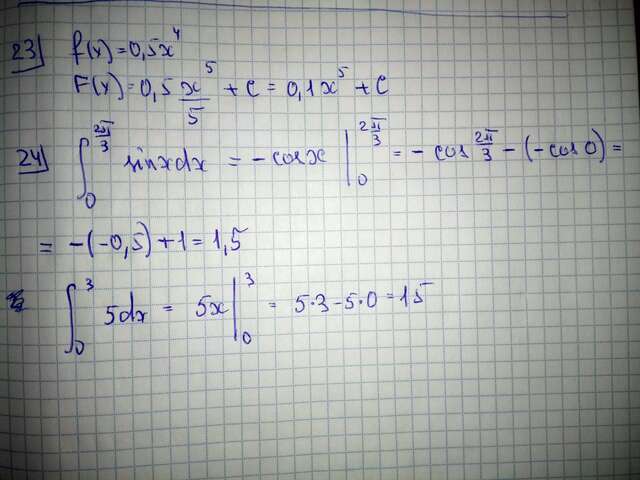 23) f(x)=0,5x⁴
F(x)=0,5 x⁵/5 + C = 0,1x⁵ + C
24) ∫₀^(2π/3) sinxdx = -cosx |₀^(2π/3) = - cos 2π/3 - (-cos 0) =
= -(-0,5)+1=1,5
∫₀³ 5dx = 5x |₀³ = 5·3-5·0=15